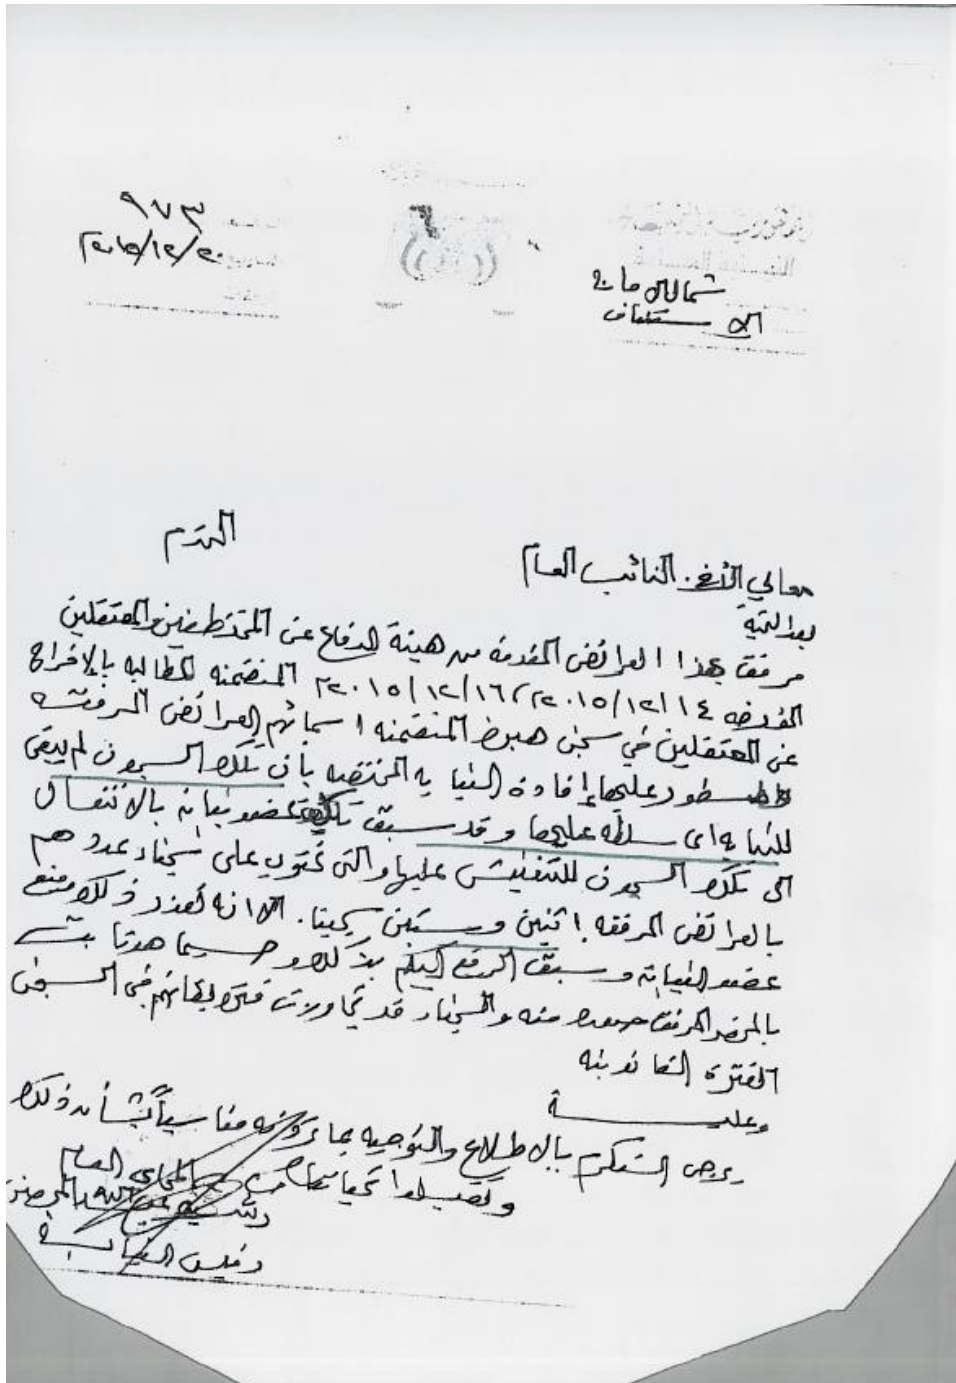 ٩٧٣
٢٠١٥/١٢/٢٠
شمال الامانة
الاستئناف
معالي الأخ. النائب العام المحترم
بعد التحية
مرفق بهذا العرائض المقدمه من هيئة الدفاع عن المختطفين والمعتقلين
المؤرخه ٢٠١٥/١٢/١٤، ٢٠١٥/١٢/١٦م المتضمنه المطالبه بالإفراج
عن المعتقلين في سجن هبره المتضمنه اسمائهم العرائض المرفقه
والمسطور عليها إفادة النيابه المختصه بأن تلك السجون لم يبقى
للنيابه اي سلطه عليها وقد سبق تكليف عضو نيابه بالانتقال
الى تلك السجون للتفتيش عليها والتي تحتوي على سجناء عددهم
بالعرائض المرفقه اثنين وستين سجينا. الا انه تعذر ذلك ومنع
عضو النيابة وسبق الرفع اليكم بذلك وحسبما هو ثابت
بالمحضر المرفق صوره منه والسجناء قد تجاوزت فترة بقائهم في السجن
الفترة القانونيه
وعليه
يرجى التكرم بالاطلاع والتوجيه بما ترونه مناسباً بشأن ذلك
وتقبلوا تحياتنا المحامي العام
رئيس النيابة